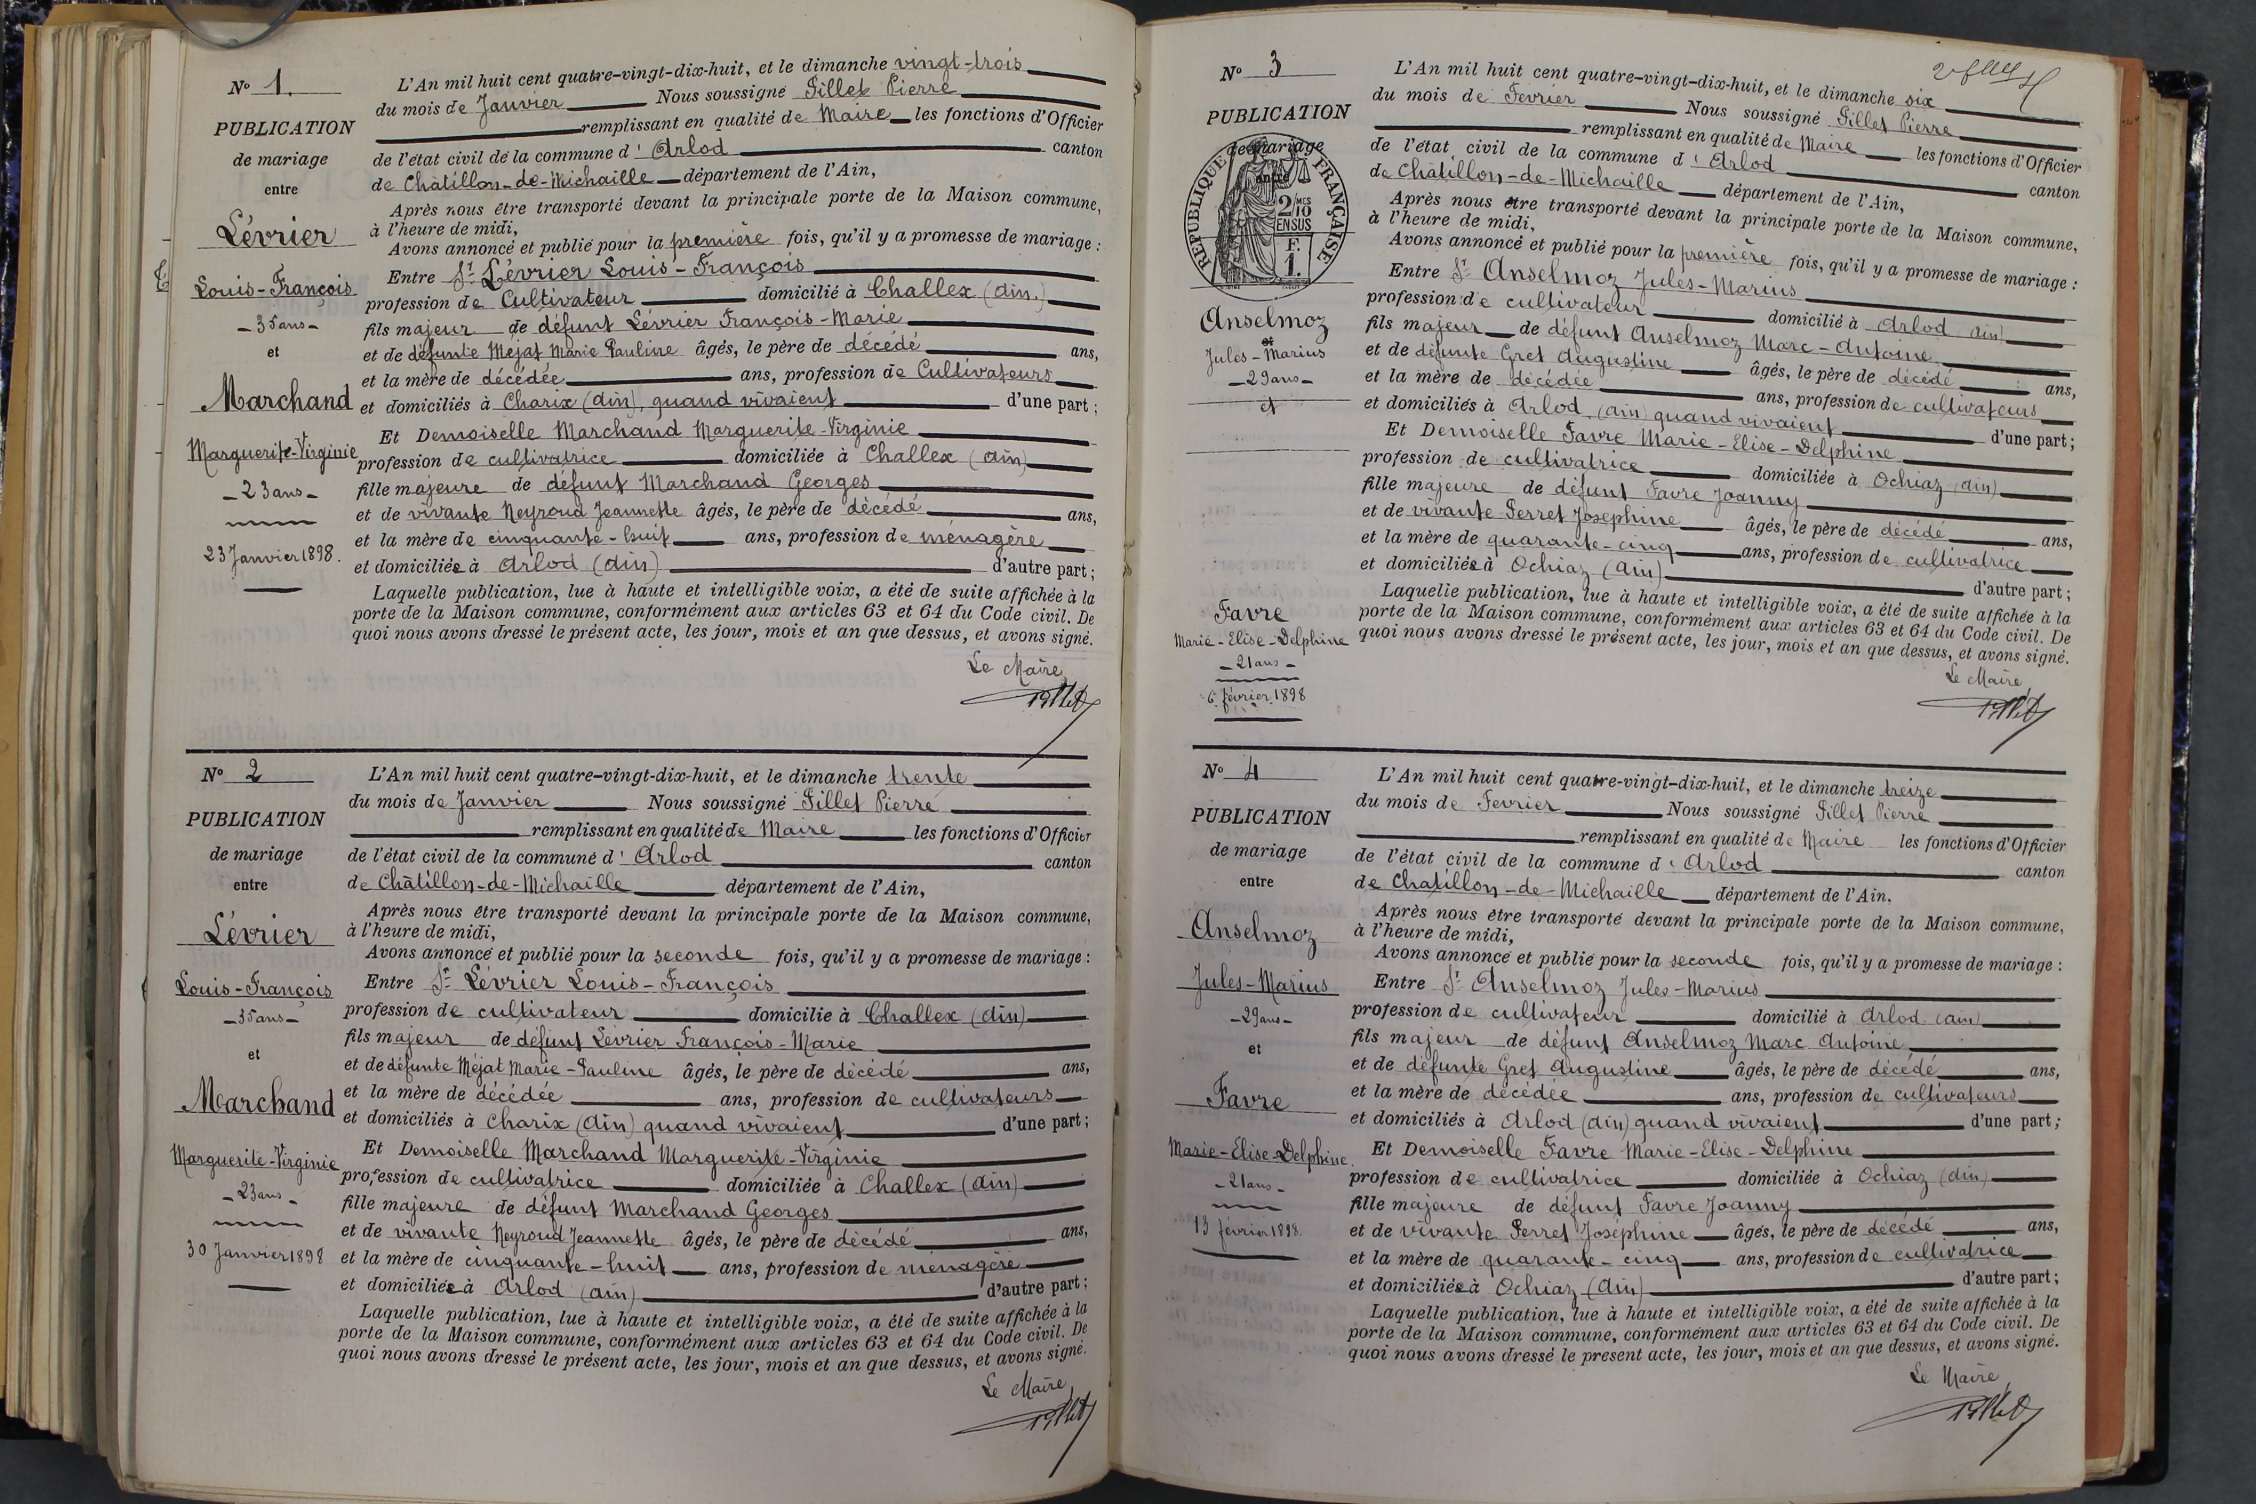 No 1.
PUBLICATION
de mariage
entre
Lévrier
Louis-François
- 35 ans -
et
Marchand
Marguerite-Virginie
- 23 ans -
23 Janvier 1898.
L'An mil huit cent quatre-vingt-dix-huit, et le dimanche vingt-trois
du mois de Janvier Nous soussigné Pillet Pierre
remplissant en qualité de Maire les fonctions d'Officier
de l'état civil de la commune d' Arlod canton
de Châtillon-de-Michaille département de l'Ain,
Après nous être transporté devant la principale porte de la Maison commune,
à l'heure de midi,
Avons annoncé et publié pour la première fois, qu'il y a promesse de mariage :
Entre Sr Lévrier Louis-François
profession de Cultivateur domicilié à Challex (Ain.)
fils majeur de défunt Lévrier François-Marie
et de défunte Méjat Marie Pauline âgés, le père de décédé ans,
et la mère de décédée ans, profession de Cultivateurs
et domiciliés à Charix (Ain), quand vivaient d'une part ;
Et Demoiselle Marchand Marguerite-Virginie
profession de cultivatrice domiciliée à Challex (Ain)
fille majeure de défunt Marchand Georges
et de vivante Neyroud Jeannette âgés, le père de décédé ans,
et la mère de cinquante-huit ans, profession de ménagère
et domiciliée à Arlod (Ain) d'autre part ;
Laquelle publication, lue à haute et intelligible voix, a été de suite affichée à la
porte de la Maison commune, conformément aux articles 63 et 64 du Code civil. De
quoi nous avons dressé le présent acte, les jour, mois et an que dessus, et avons signé.
Le Maire
Pillet
No 2
PUBLICATION
de mariage
entre
Lévrier
Louis-François
- 35 ans -
et
Marchand
Marguerite-Virginie
- 23 ans -
30 Janvier 1898
L'An mil huit cent quatre-vingt-dix-huit, et le dimanche trente
du mois de Janvier Nous soussigné Pillet Pierre
remplissant en qualité de Maire les fonctions d'Officier
de l'état civil de la commune d' Arlod canton
de Châtillon-de-Michaille département de l'Ain,
Après nous être transporté devant la principale porte de la Maison commune,
à l'heure de midi,
Avons annoncé et publié pour la seconde fois, qu'il y a promesse de mariage :
Entre Sr Lévrier Louis-François
profession de cultivateur domicilié à Challex (Ain)
fils majeur de défunt Lévrier François-Marie
et de défunte Méjat Marie-Pauline âgés, le père de décédé ans,
et la mère de décédée ans, profession de cultivateurs
et domiciliés à Charix (Ain) quand vivaient d'une part ;
Et Demoiselle Marchand Marguerite-Virginie
profession de cultivatrice domiciliée à Challex (Ain)
fille majeure de défunt Marchand Georges
et de vivante Neyroud Jeannette âgés, le père de décédé ans,
et la mère de cinquante-huit ans, profession de ménagère
et domiciliée à Arlod (Ain) d'autre part ;
Laquelle publication, lue à haute et intelligible voix, a été de suite affichée à la
porte de la Maison commune, conformément aux articles 63 et 64 du Code civil. De
quoi nous avons dressé le présent acte, les jour, mois et an que dessus, et avons signé.
Le Maire
Pillet
No 3
PUBLICATION
de mariage
entre
RÉPUBLIQUE FRANÇAISE
2/10 MES
EN SUS
F.
1.
Anselmoz
Jules-Marius
- 29 ans -
et
Favre
Marie-Elise-Delphine
- 21 ans -
6 février 1898
L'An mil huit cent quatre-vingt-dix-huit, et le dimanche six
du mois de Fevrier Nous soussigné Pillet Pierre
remplissant en qualité de Maire les fonctions d'Officier
de l'état civil de la commune d' Arlod canton
de Châtillon-de-Michaille département de l'Ain,
Après nous être transporté devant la principale porte de la Maison commune,
à l'heure de midi,
Avons annoncé et publié pour la première fois, qu'il y a promesse de mariage :
Entre Sr Anselmoz Jules-Marius
profession de cultivateur domicilié à Arlod Ain)
fils majeur de défunt Anselmoz Marc-Antoine
et de défunte Gret Augustine âgés, le père de décédé ans,
et la mère de décédée ans, profession de cultivateurs
et domiciliés à Arlod (Ain) quand vivaient d'une part ;
Et Demoiselle Favre Marie-Elise-Delphine
profession de cultivatrice domiciliée à Ochiaz (Ain)
fille majeure de défunt Favre Joanny
et de vivante Perret Josephine âgés, le père de décédé ans,
et la mère de quarante-cinq ans, profession de cultivatrice
et domiciliée à Ochiaz (Ain) d'autre part ;
Laquelle publication, lue à haute et intelligible voix, a été de suite affichée à la
porte de la Maison commune, conformément aux articles 63 et 64 du Code civil. De
quoi nous avons dressé le présent acte, les jour, mois et an que dessus, et avons signé.
Le Maire
Pillet
No 4
PUBLICATION
de mariage
entre
Anselmoz
Jules-Marius
- 29 ans -
et
Favre
Marie-Elise-Delphine
- 21 ans -
13 février 1898.
L'An mil huit cent quatre-vingt-dix-huit, et le dimanche treize
du mois de Fevrier Nous soussigné Pillet Pierre
remplissant en qualité de Maire les fonctions d'Officier
de l'état civil de la commune d' Arlod canton
de Chatillon-de-Michaille département de l'Ain.
Après nous être transporté devant la principale porte de la Maison commune,
à l'heure de midi,
Avons annoncé et publié pour la seconde fois, qu'il y a promesse de mariage :
Entre Sr Anselmoz Jules-Marius
profession de cultivateur domicilié à Arlod (Ain)
fils majeur de défunt Anselmoz Marc Antoine
et de défunte Gret Augustine âgés, le père de décédé ans,
et la mère de décédée ans, profession de cultivateurs
et domiciliés à Arlod (Ain) quand vivaient d'une part ;
Et Demoiselle Favre Marie-Elise-Delphine
profession de cultivatrice domiciliée à Ochiaz (Ain)
fille majeure de défunt Favre Joanny
et de vivante Perret Joséphine âgés, le père de décédé ans,
et la mère de quarante-cinq ans, profession de cultivatrice
et domiciliée à Ochiaz (Ain) d'autre part ;
Laquelle publication, lue à haute et intelligible voix, a été de suite affichée à la
porte de la Maison commune, conformément aux articles 63 et 64 du Code civil. De
quoi nous avons dressé le présent acte, les jour, mois et an que dessus, et avons signé.
Le Maire
Pillet